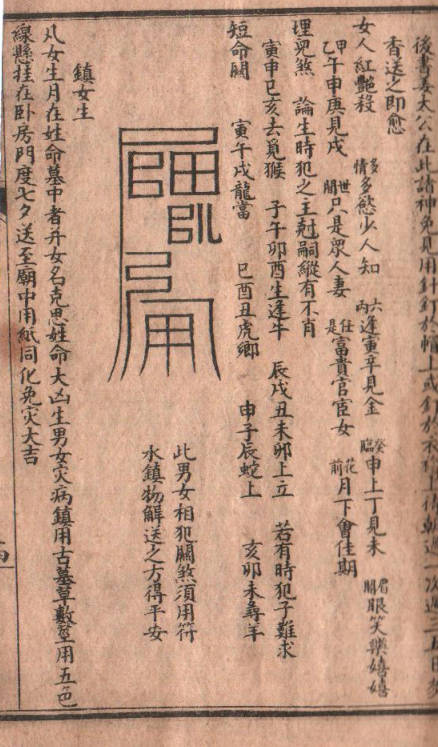 後書姜太公在此諸神免見用針釘於帽上或釘於衣領上
香送之即愈
女人紅艷殺 多情多慾少人知 六丙逢寅辛見金 癸臨申上丁見未 眉開眼笑樂嬉嬉
甲乙午申庚見戌 世間只是眾人妻 任是富貴官宦女 花前月下會佳期
埋兒煞 論生時犯之主尅嗣縱有不肖
寅申巳亥去覓猴 子午卯酉生逢牛 辰戌丑未卯上立 若有時犯子難求
短命關 寅午戌龍當 巳酉丑虎鄉 申子辰蛇上 亥卯未尋羊
此男女相犯關煞須用符
水鎮物解送之方得平安
鎮女生
凡女生月在姓命墓中者并女名克思姓命大凶生男女灾病鎮用古墓草數莖用五色
線懸挂在卧房門度七夕送至廟中用紙同化免灾大吉